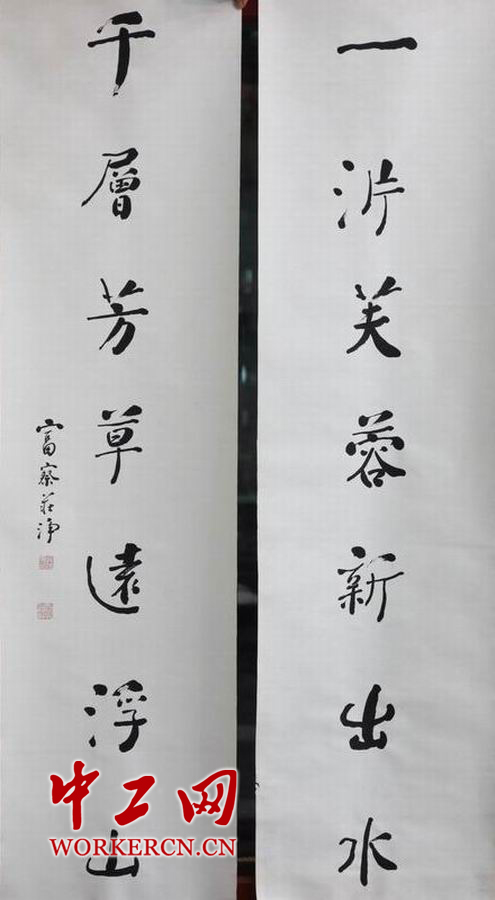 一沜芙蓉新出水
千層芳草遠浮山
富察莊淨
中工网
WORKERCN.CN